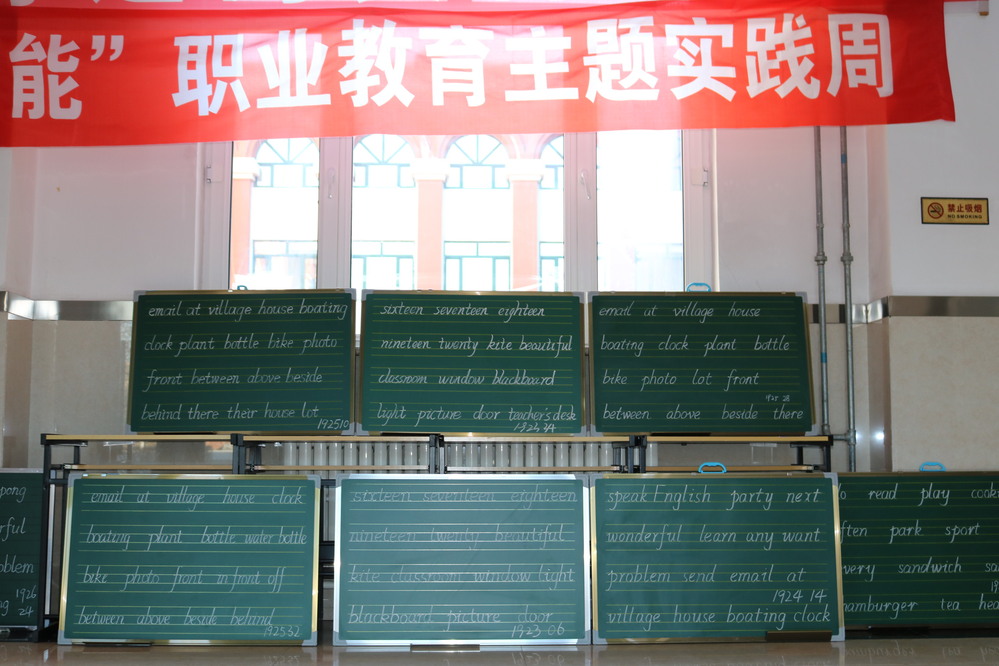 能” 职业教育主题实践周
禁止吸烟
NO SMOKING
email at village house boating
clock plant bottle bike photo
front between above beside
behind there their house lot
192510
sixteen seventeen eighteen
nineteen twenty kite beautiful
classroom window blackboard
light picture door teacher's desk
192324
email at village house
boating clock plant bottle
bike photo lot front
1925 28
between above beside there
pong
rful
oblem
1926
24
email at village house clock
boating plant bottle water bottle
bike photo front in front off
between above beside behind
192532
sixteen seventeen eighteen
nineteen twenty beautiful
kite classroom window light
blackboard picture door
1923 06
speak English party next
wonderful learn any want
problem send email at
1924 14
village house boating clock
o read play cook
ften park sport
very sandwich sa
hamburger tea hea